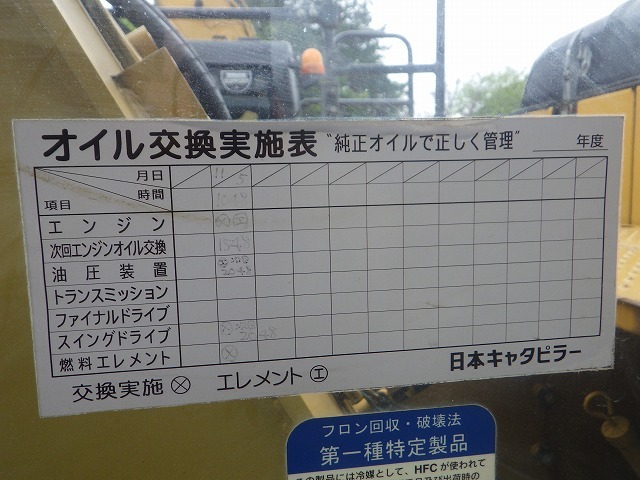 オイル交換実施表 "純正オイルで正しく管理" 年度
月日
時間
項目
エンジン
次回エンジンオイル交換
油圧装置
トランスミッション
ファイナルドライブ
スイングドライブ
燃料エレメント
交換実施 ⓧ エレメント ㋓
日本キャタピラー
フロン回収・破壊法
第一種特定製品
この製品には冷媒として、HFCが使われて